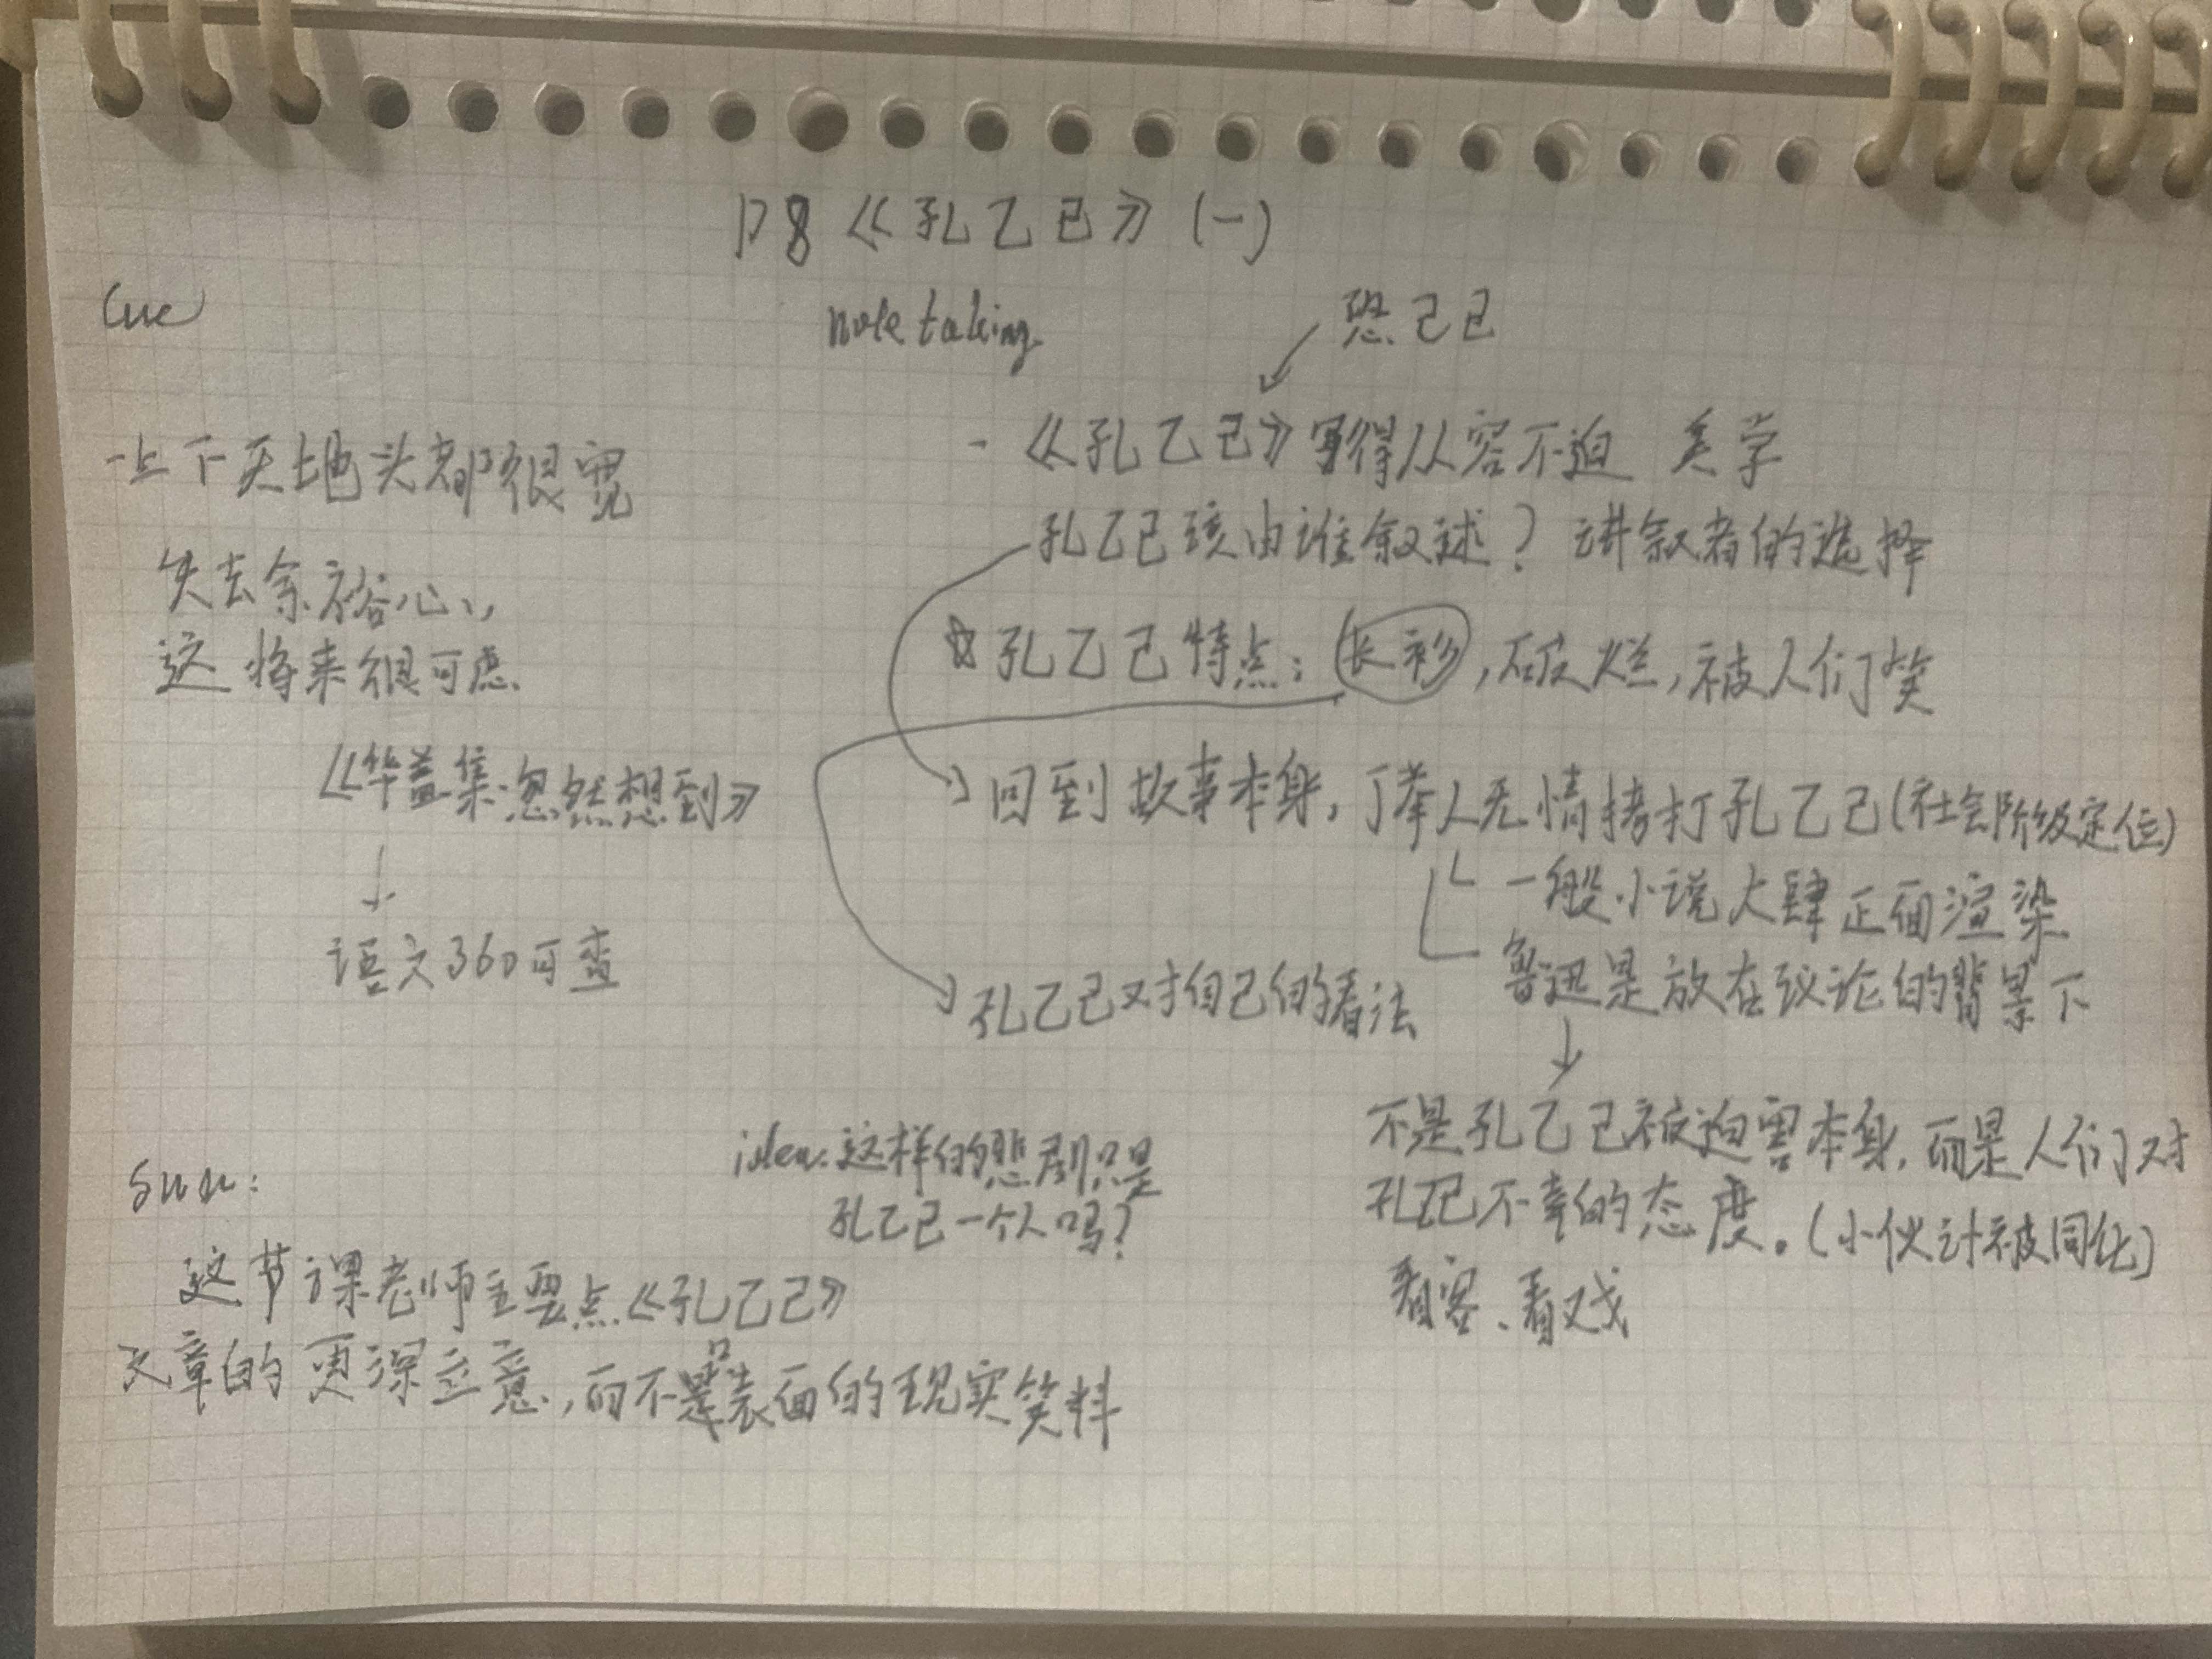 D8《孔乙己》(一)
Cue
note taking
恐己已
- 上下天地头都很宽
失去余裕心,
这将来很可虑
《华盖集·忽然想到》
语文360可查
- 《孔乙己》写得从容不迫 美学
孔乙己该由谁叙述？讲叙者的选择
孔乙己特点：长衫，破烂，被人们笑
回到故事本身，丁举人无情拷打孔乙己(社会阶级定位)
一般小说大肆正面渲染
鲁迅是放在议论的背景下
孔乙己对自己的看法
不是孔乙己被迫害本身，而是人们对
孔乙己不幸的态度。(小伙计被同化)
看客、看戏
idea: 这样的悲剧只是
孔乙己一个人吗？
Sum:
这节课老师主要点《孔乙己》
文章的更深立意，而不是表面的现实笑料